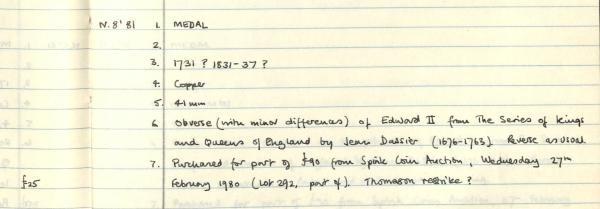 N.8'81 1. MEDAL
2.
3. 1731 ? 1831-37 ?
4. Copper
5. 41 mm
6. Obverse (with minor differences) of Edward II from The Series of Kings
and Queens of England by Jean Dassier (1676-1763). Reverse as usual
7. Purchased for part of £90 from Spink Coin Auction, Wednesday 27th
£25 February 1980 (Lot 292, part of). Thomason restrike?